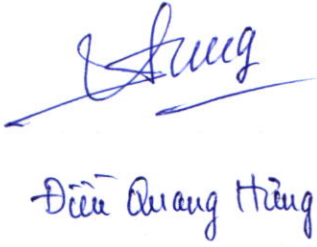 Hưng
Điều Quang Hưng